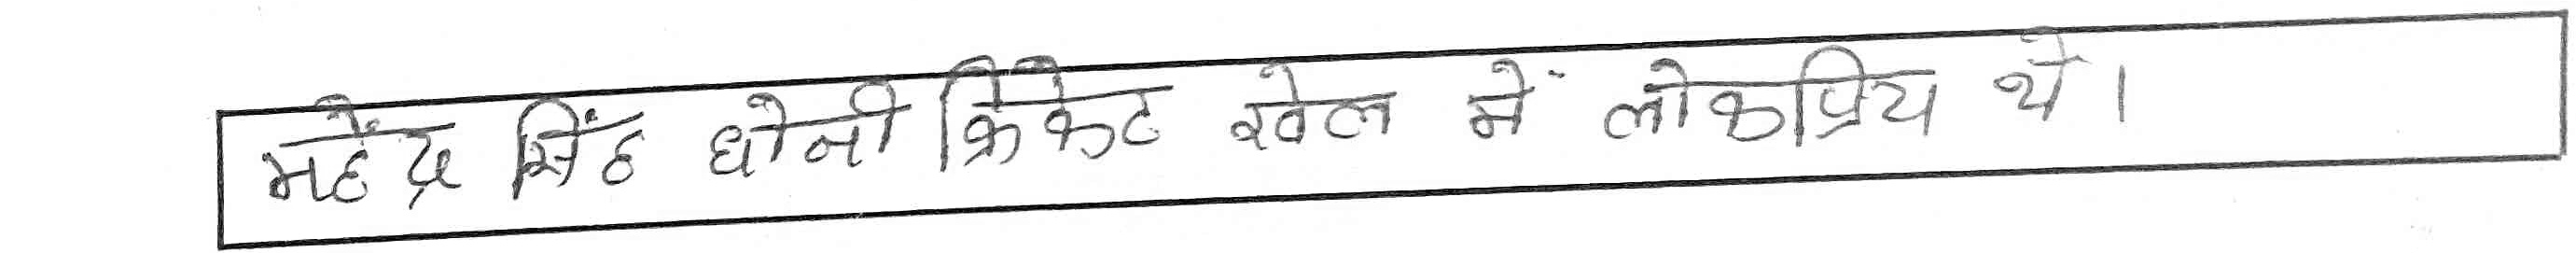 महेंद्र सिंह धोनी क्रिकेट खेल में लोकप्रिय थे।